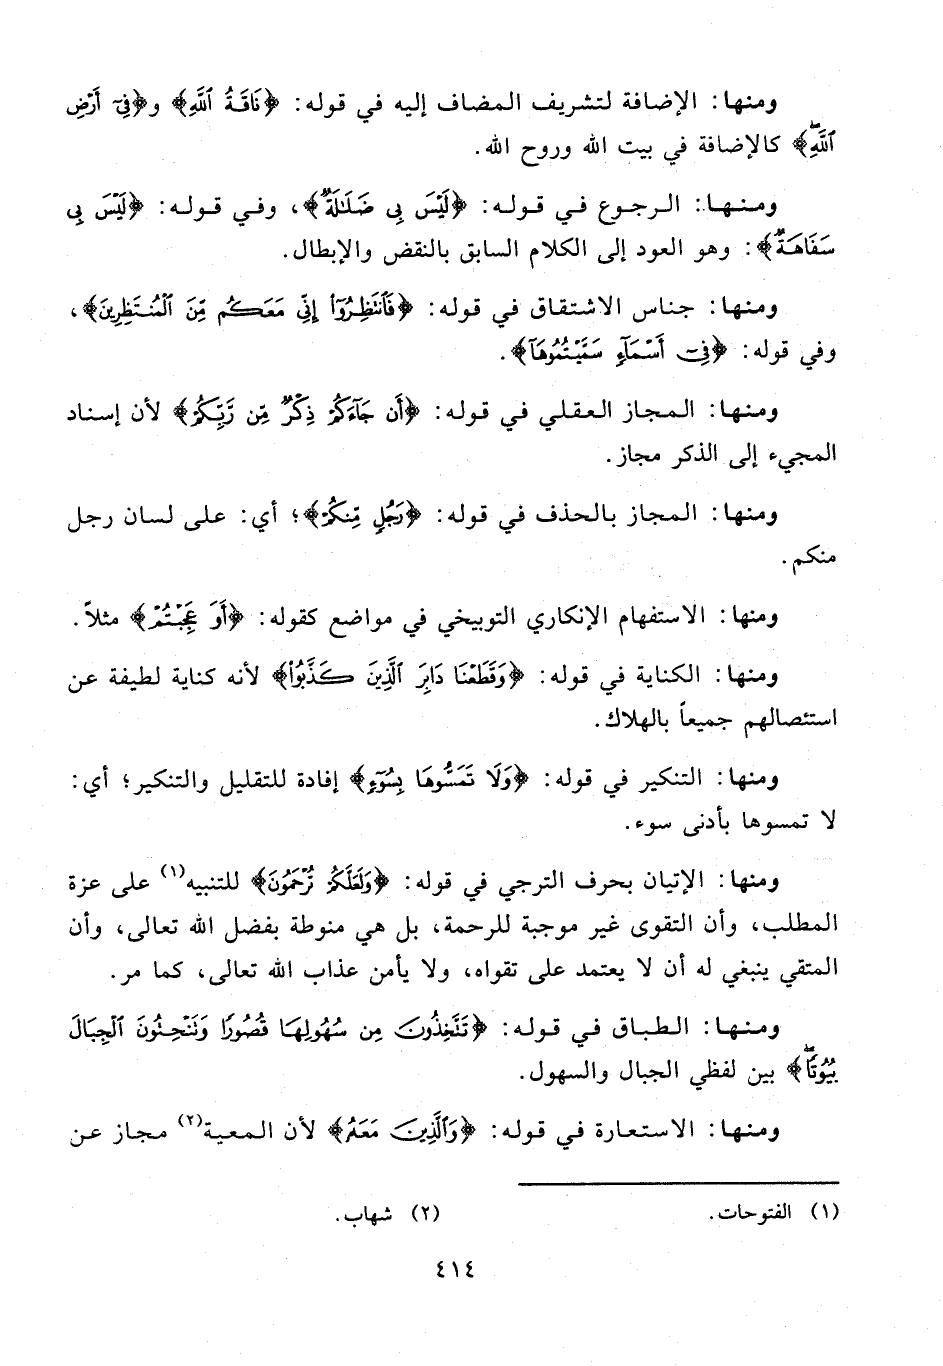 ومنها: الإضافة لتشريف المضاف إليه في قوله: ﴿نَاقَةُ ٱللَّهِ﴾ و﴿فِىٓ أَرْضِ
ٱللَّهِۖ﴾ كالإضافة في بيت الله وروح الله.
ومنها: الرجوع في قوله: ﴿لَيْسَ بِى ضَلَـٰلَةٌۭ﴾، وفي قوله: ﴿لَيْسَ بِى
سَفَاهَةٌۭ﴾: وهو العود إلى الكلام السابق بالنقض والإبطال.
ومنها: جناس الاشتقاق في قوله: ﴿فَٱنتَظِرُوٓا۟ إِنِّى مَعَكُم مِّنَ ٱلْمُنتَظِرِينَ﴾،
وفي قوله: ﴿فِىٓ أَسْمَآءٍۢ سَمَّيْتُمُوهَآ﴾.
ومنها: المجاز العقلي في قوله: ﴿أَن جَآءَكُمْ ذِكْرٌۭ مِّن رَّبِّكُمْ﴾ لأن إسناد
المجيء إلى الذكر مجاز.
ومنها: المجاز بالحذف في قوله: ﴿رَجُلٍۢ مِّنكُمْ﴾؛ أي: على لسان رجل
منكم.
ومنها: الاستفهام الإنكاري التوبيخي في مواضع كقوله: ﴿أَوَ عَجِبْتُمْ﴾ مثلاً.
ومنها: الكناية في قوله: ﴿وَقَطَعْنَا دَابِرَ ٱلَّذِينَ كَذَّبُوا۟﴾ لأنه كناية لطيفة عن
استئصالهم جميعاً بالهلاك.
ومنها: التنكير في قوله: ﴿وَلَا تَمَسُّوهَا بِسُوٓءٍۢ﴾ إفادة للتقليل والتنكير؛ أي:
لا تمسوها بأدنى سوء.
ومنها: الإتيان بحرف الترجي في قوله: ﴿وَلَعَلَّكُمْ تُرْحَمُونَ﴾ للتنبيه(١) على عزة
المطلب، وأن التقوى غير موجبة للرحمة، بل هي منوطة بفضل الله تعالى، وأن
المتقي ينبغي له أن لا يعتمد على تقواه، ولا يأمن عذاب الله تعالى، كما مر.
ومنها: الطباق في قوله: ﴿تَتَّخِذُونَ مِن سُهُولِهَا قُصُورًۭا وَتَنْحِتُونَ ٱلْجِبَالَ
بُيُوتًۭاۖ﴾ بين لفظي الجبال والسهول.
ومنها: الاستعارة في قوله: ﴿وَٱلَّذِينَ مَعَهُۥ﴾ لأن المعية(٢) مجاز عن
(١) الفتوحات. (٢) شهاب.
٤١٤